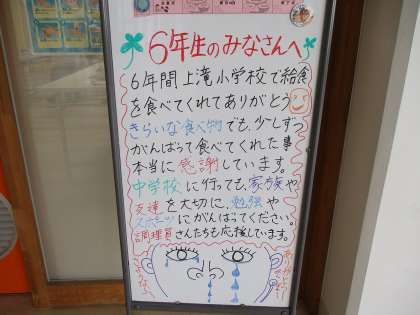 6年生のみなさんへ
6年間上滝小学校で給食
を食べてくれてありがとう
きらいな食べ物でも、少しずつ
がんばって食べてくれた事
本当に感謝しています。
中学校に行っても、家族や
友達を大切に、勉強や
スポーツにがんばってください。
調理員さんたちも応援しています。